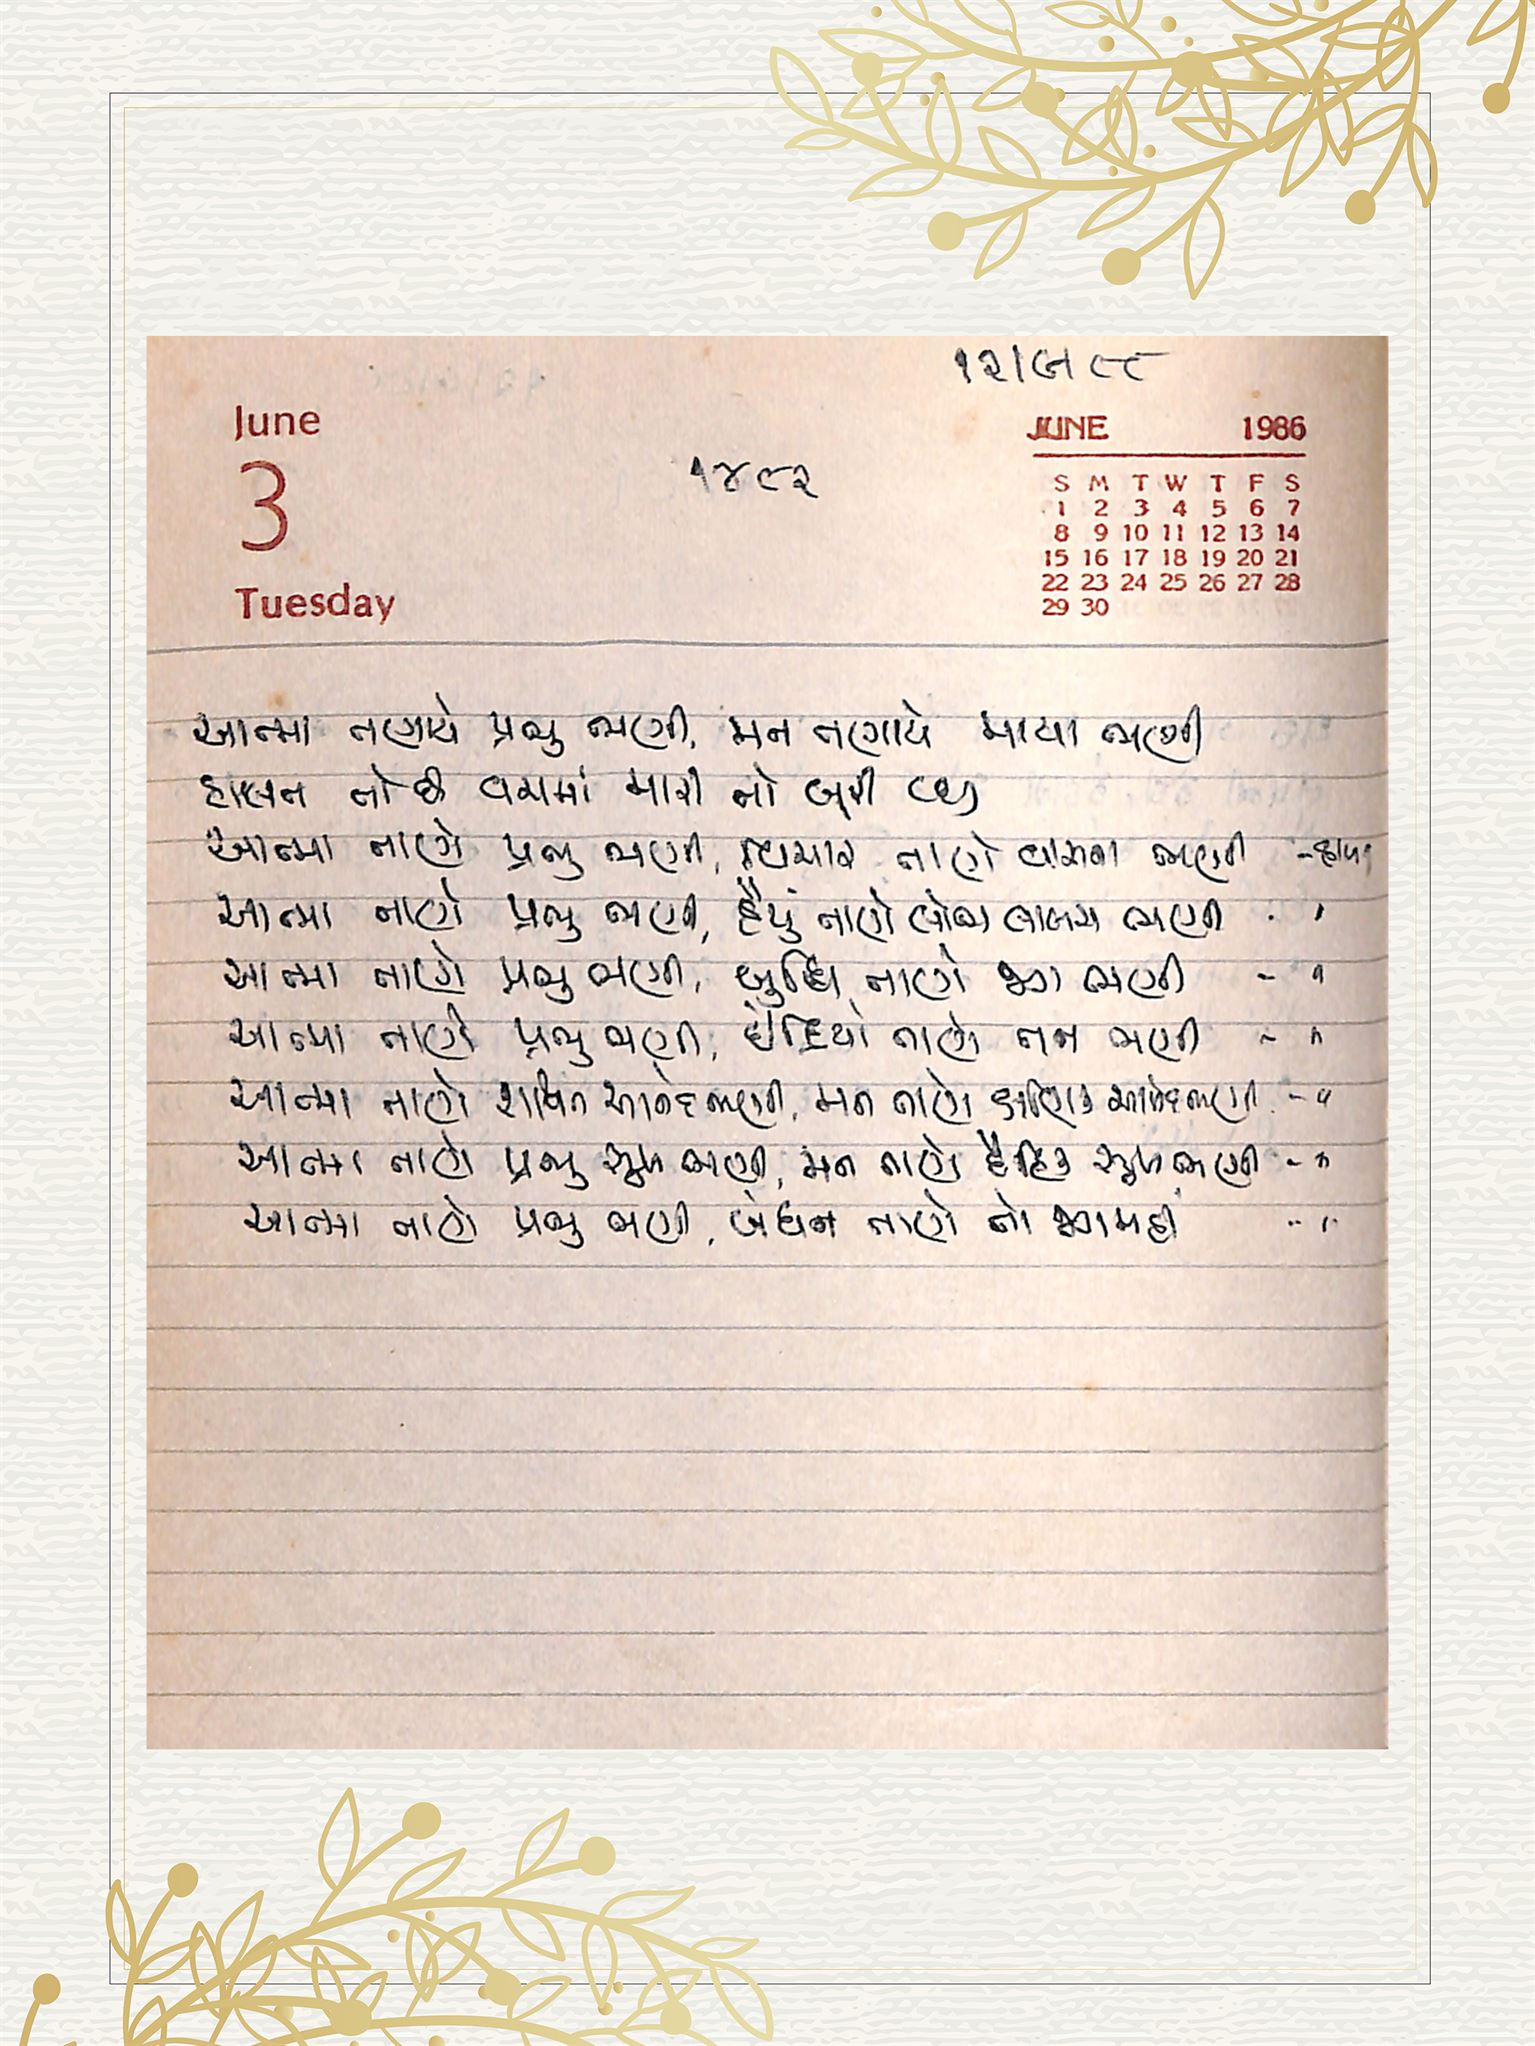 ૧૨/૯/૮૮
June
3
Tuesday
૧૪૮૨
JUNE 1986
S M T W T F S
1 2 3 4 5 6 7
8 9 10 11 12 13 14
15 16 17 18 19 20 21
22 23 24 25 26 27 28
29 30
આત્મા તણાયે પ્રભુ ભણી, મન તણાયે માયા ભણી
હાલત તો છે વચમાં મારી તો બૂરી થઈ
આત્મા તાણે પ્રભુ ભણી, વિચાર તાણે વાસના ભણી - હાલત
આત્મા તાણે પ્રભુ ભણી, હૈયું તાણે લોભ લાલચ ભણી - "
આત્મા તાણે પ્રભુ ભણી, બુદ્ધિ તાણે જગ ભણી - "
આત્મા તાણે પ્રભુ ભણી, ઇંદ્રિયો તાણે તન ભણી - "
આત્મા તાણે શાશ્વત આનંદ ભણી, મન તાણે ક્ષણિક આનંદ ભણી - "
આત્મા તાણે પ્રભુ સુખ ભણી, મન તાણે દૈહિક સુખ ભણી - "
આત્મા તાણે પ્રભુ ભણી, બંધન તાણે તો જગ મહીં - "